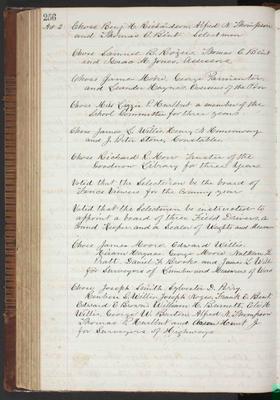 256
Art 2 Chose Benj H. Richardson Alfred N. Thompson
and Thomas C. Bent Selectmen
Chose Samuel B. Rogers Thomas C. Bent
and Isaac H. Jones, Assessors
Chose James Moore George Parmenter
and Leander Haynes Overseers of the Poor
Chose Miss Lizzie P. Hurlbut a member of the
School Committee for three years
Chose James L. Willis Henry
and J. Peter Stone, Constables
Chose Richard R. How Trustee of the
Goodnow Library for three years
Voted that the Selectmen be the board of
Fence Viewers for the Ensuing year
Voted that the Selectmen be instructed to
appoint a board of three Field Drivers, a
Pound Keeper and a Sealer of Weights and Measures
Chose James Moore Edward Willis
Hiram Haynes George Moore Nathan L.
Pratt. Daniel F. Brooks and James L. Willis
for Surveyors of Lumber and Measurers of Wood
Chose Joseph Smith Sylvester D. Perry
Reuben S. Willis Joseph Rogers Frank E. Bent
Edward E. Brown William H. Burnett
Willis, George W. Burton Alfred N. Thompson
Thomas P. Hurlbut and Aaron Hunt Jr
for Surveyors of Highways